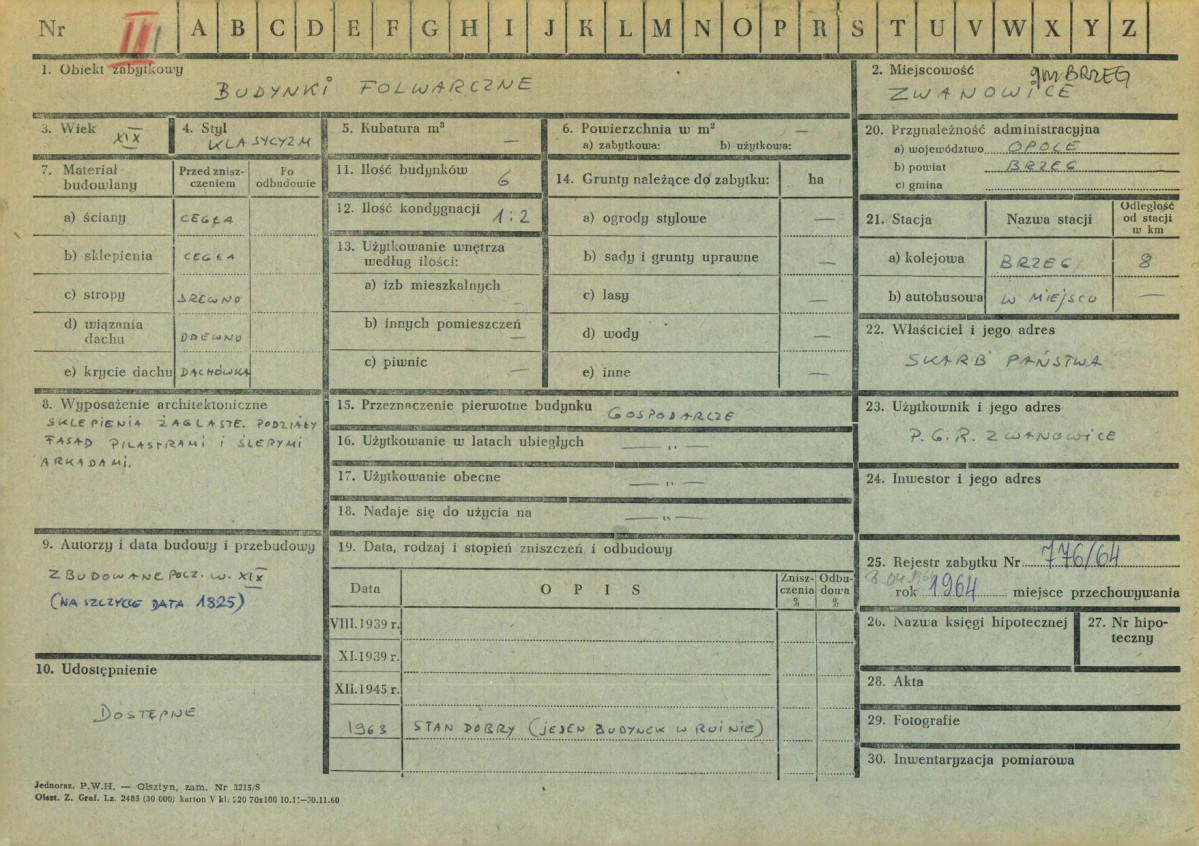 Nr III A B C D E F G H I J K L M N O P R S T U V W X Y Z
1. Obiekt zabytkowy
BUDYNKI FOLWARCZNE
2. Miejscowość gm BRZEG
ZWANOWICE
3. Wiek XIX
4. Styl
KLASYCYZM
5. Kubatura m³
—
6. Powierzchnia w m² —
a) zabytkowa: b) użytkowa:
7. Materiał budowlany
Przed zniszczeniem
Po odbudowie
a) ściany CEGŁA
b) sklepienia CEGŁA
c) stropy DREWNO
d) wiązania dachu DREWNO
e) krycie dachu DACHÓWKA
8. Wyposażenie architektoniczne
SKLEPIENIA ŻAGLASTE. PODZIAŁY
FASAD PILASTRAMI I ŚLEPYMI
ARKADAMI.
9. Autorzy i data budowy i przebudowy
ZBUDOWANE POCZ. W. XIX
(NA SZCZYCIE DATA 1825)
10. Udostępnienie
DOSTĘPNE
11. Ilość budynków
6
12. Ilość kondygnacji 1 i 2
13. Użytkowanie wnętrza
według ilości:
a) izb mieszkalnych
—
b) innych pomieszczeń
—
c) piwnic
—
14. Grunty należące do zabytku: ha
a) ogrody stylowe —
b) sady i grunty uprawne —
c) lasy —
d) wody —
e) inne —
15. Przeznaczenie pierwotne budynku GOSPODARCZE
16. Użytkowanie w latach ubiegłych — „ —
17. Użytkowanie obecne — „ —
18. Nadaje się do użycia na — „ —
19. Data, rodzaj i stopień zniszczeń i odbudowy
Data OPIS Zniszczenia % Odbudowa %
VIII.1939 r.
XI.1939 r.
XII.1945 r.
1963 STAN DOBRY (JEDEN BUDYNEK W RUINIE)
20. Przynależność administracyjna
a) województwo OPOLE
b) powiat BRZEG
c) gmina
21. Stacja Nazwa stacji Odległość od stacji w km
a) kolejowa BRZEG 8
b) autobusowa W MIEJSCU —
22. Właściciel i jego adres
SKARB PAŃSTWA
23. Użytkownik i jego adres
P.G.R. ZWANOWICE
24. Inwestor i jego adres
25. Rejestr zabytku Nr 776/64
8.04.1964
rok 1964 miejsce przechowywania
26. Nazwa księgi hipotecznej
27. Nr hipoteczny
28. Akta
29. Fotografie
30. Inwentaryzacja pomiarowa
Jednoraz. P.W.H. — Olsztyn, zam. Nr 3215/S
Olszt. Z. Graf. Lz. 2485 (30 000) karton V kl. 220 70x100 10.11—30.11.60